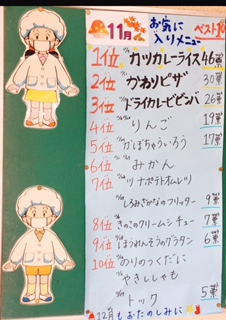 11月 お気に入りメニュー ベスト10
1位 カツカレーライス 46票
2位 かわりピザ 30票
3位 ドライカレービビンバ 26票
4位 りんご 19票
5位 かぼちゃういろう 17票
6位 みかん
7位 ツナポテトオムレツ
しろみざかなのフリッター 9票
8位 きのこのクリームシチュー 7票
9位 ほうれんそうのグラタン 6票
10位 のりのつくだに
やきししゃも
トック 5票
12月もおたのしみに